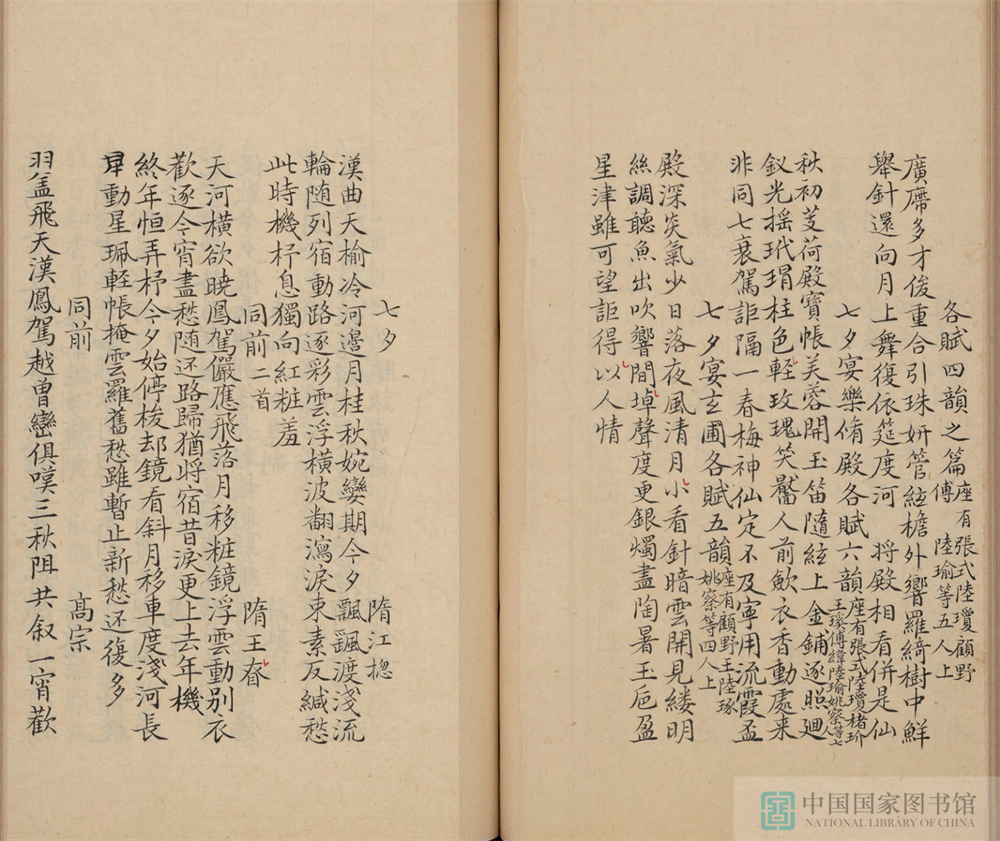 各賦四韻之篇座有張式陸瓊顧野
傅
陸瑜等五人上
廣廗多才俊重合引珠妍管絃檐外響羅綺樹中鮮
舉針還向月上舞復依筵度河 將殿相看併是仙
七夕宴樂脩殿各賦六韻座有張式陸瓊褚玠
王瑳傅縡陸瑜姚察等七人上
秋初芰荷殿寶帳芙蓉開玉笛隨絃上金鋪逐照廻
釵光搖玳瑁柱色輕玫瑰笑靨人前歛衣香動處来
非同七襄駕詎隔一春梅神仙定不及寧用流霞盃
七夕宴玄圃各賦五韻座有顧野王陸琢
姚察等四人上
殿深炎氣少日落夜風清月小看針暗雲開見縷明
絲調聽魚出吹響間埠聲度更銀燭盡陶暑玉巵盈
星津雖可望詎得以人情
七夕 隋江揔
漢曲天榆冷河邊月桂秋婉孌期今夕飄颻渡淺流
輪随列宿動路逐彩雲浮横波翻瀉淚束素反緘愁
此時機杼息獨向紅粧羞
同前二首 隋王眘
天河横欲曉鳳駕儼應飛落月移粧鏡浮雲動别衣
歡逐今宵盡愁随还路歸猶將宿昔淚更上去年機
終年恒弄杼今夕始停梭却鏡看斜月移車度淺河長
早動星珮輕帳掩雲羅舊愁雖暫止新愁还復多
同前 髙宗
羽盖飛天漢鳳駕越曾巒俱嘆三秋阻共叙一宵歡
中国国家图书馆
NATIONAL LIBRARY OF CHINA